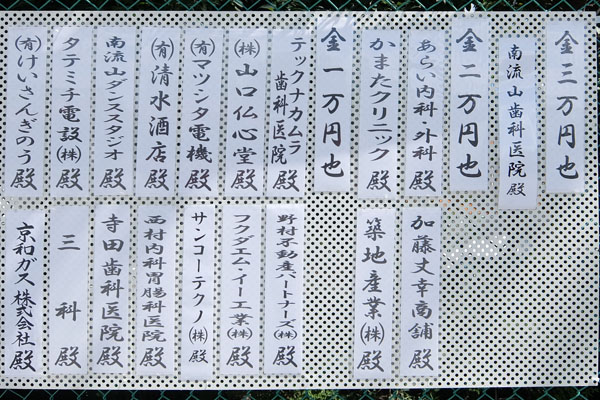 金三万円也
南流山歯科医院殿
金二万円也
あらい内科外科殿
かまたクリニック殿
金一万円也
テックナカムラ歯科医院殿
(株)山口仏心堂殿
(有)マツシタ電機殿
(有)清水酒店殿
南流山ダンススタジオ殿
タテミチ電設(株)殿
(有)けいさんぎのう殿
加藤丈幸商舗殿
築地産業(株)殿
野村不動産パートナーズ(株)殿
フクダエム・イー工業(株)殿
サンコーテクノ(株)殿
西村内科胃腸科医院殿
寺田歯科医院殿
三科殿
京和ガス株式会社殿